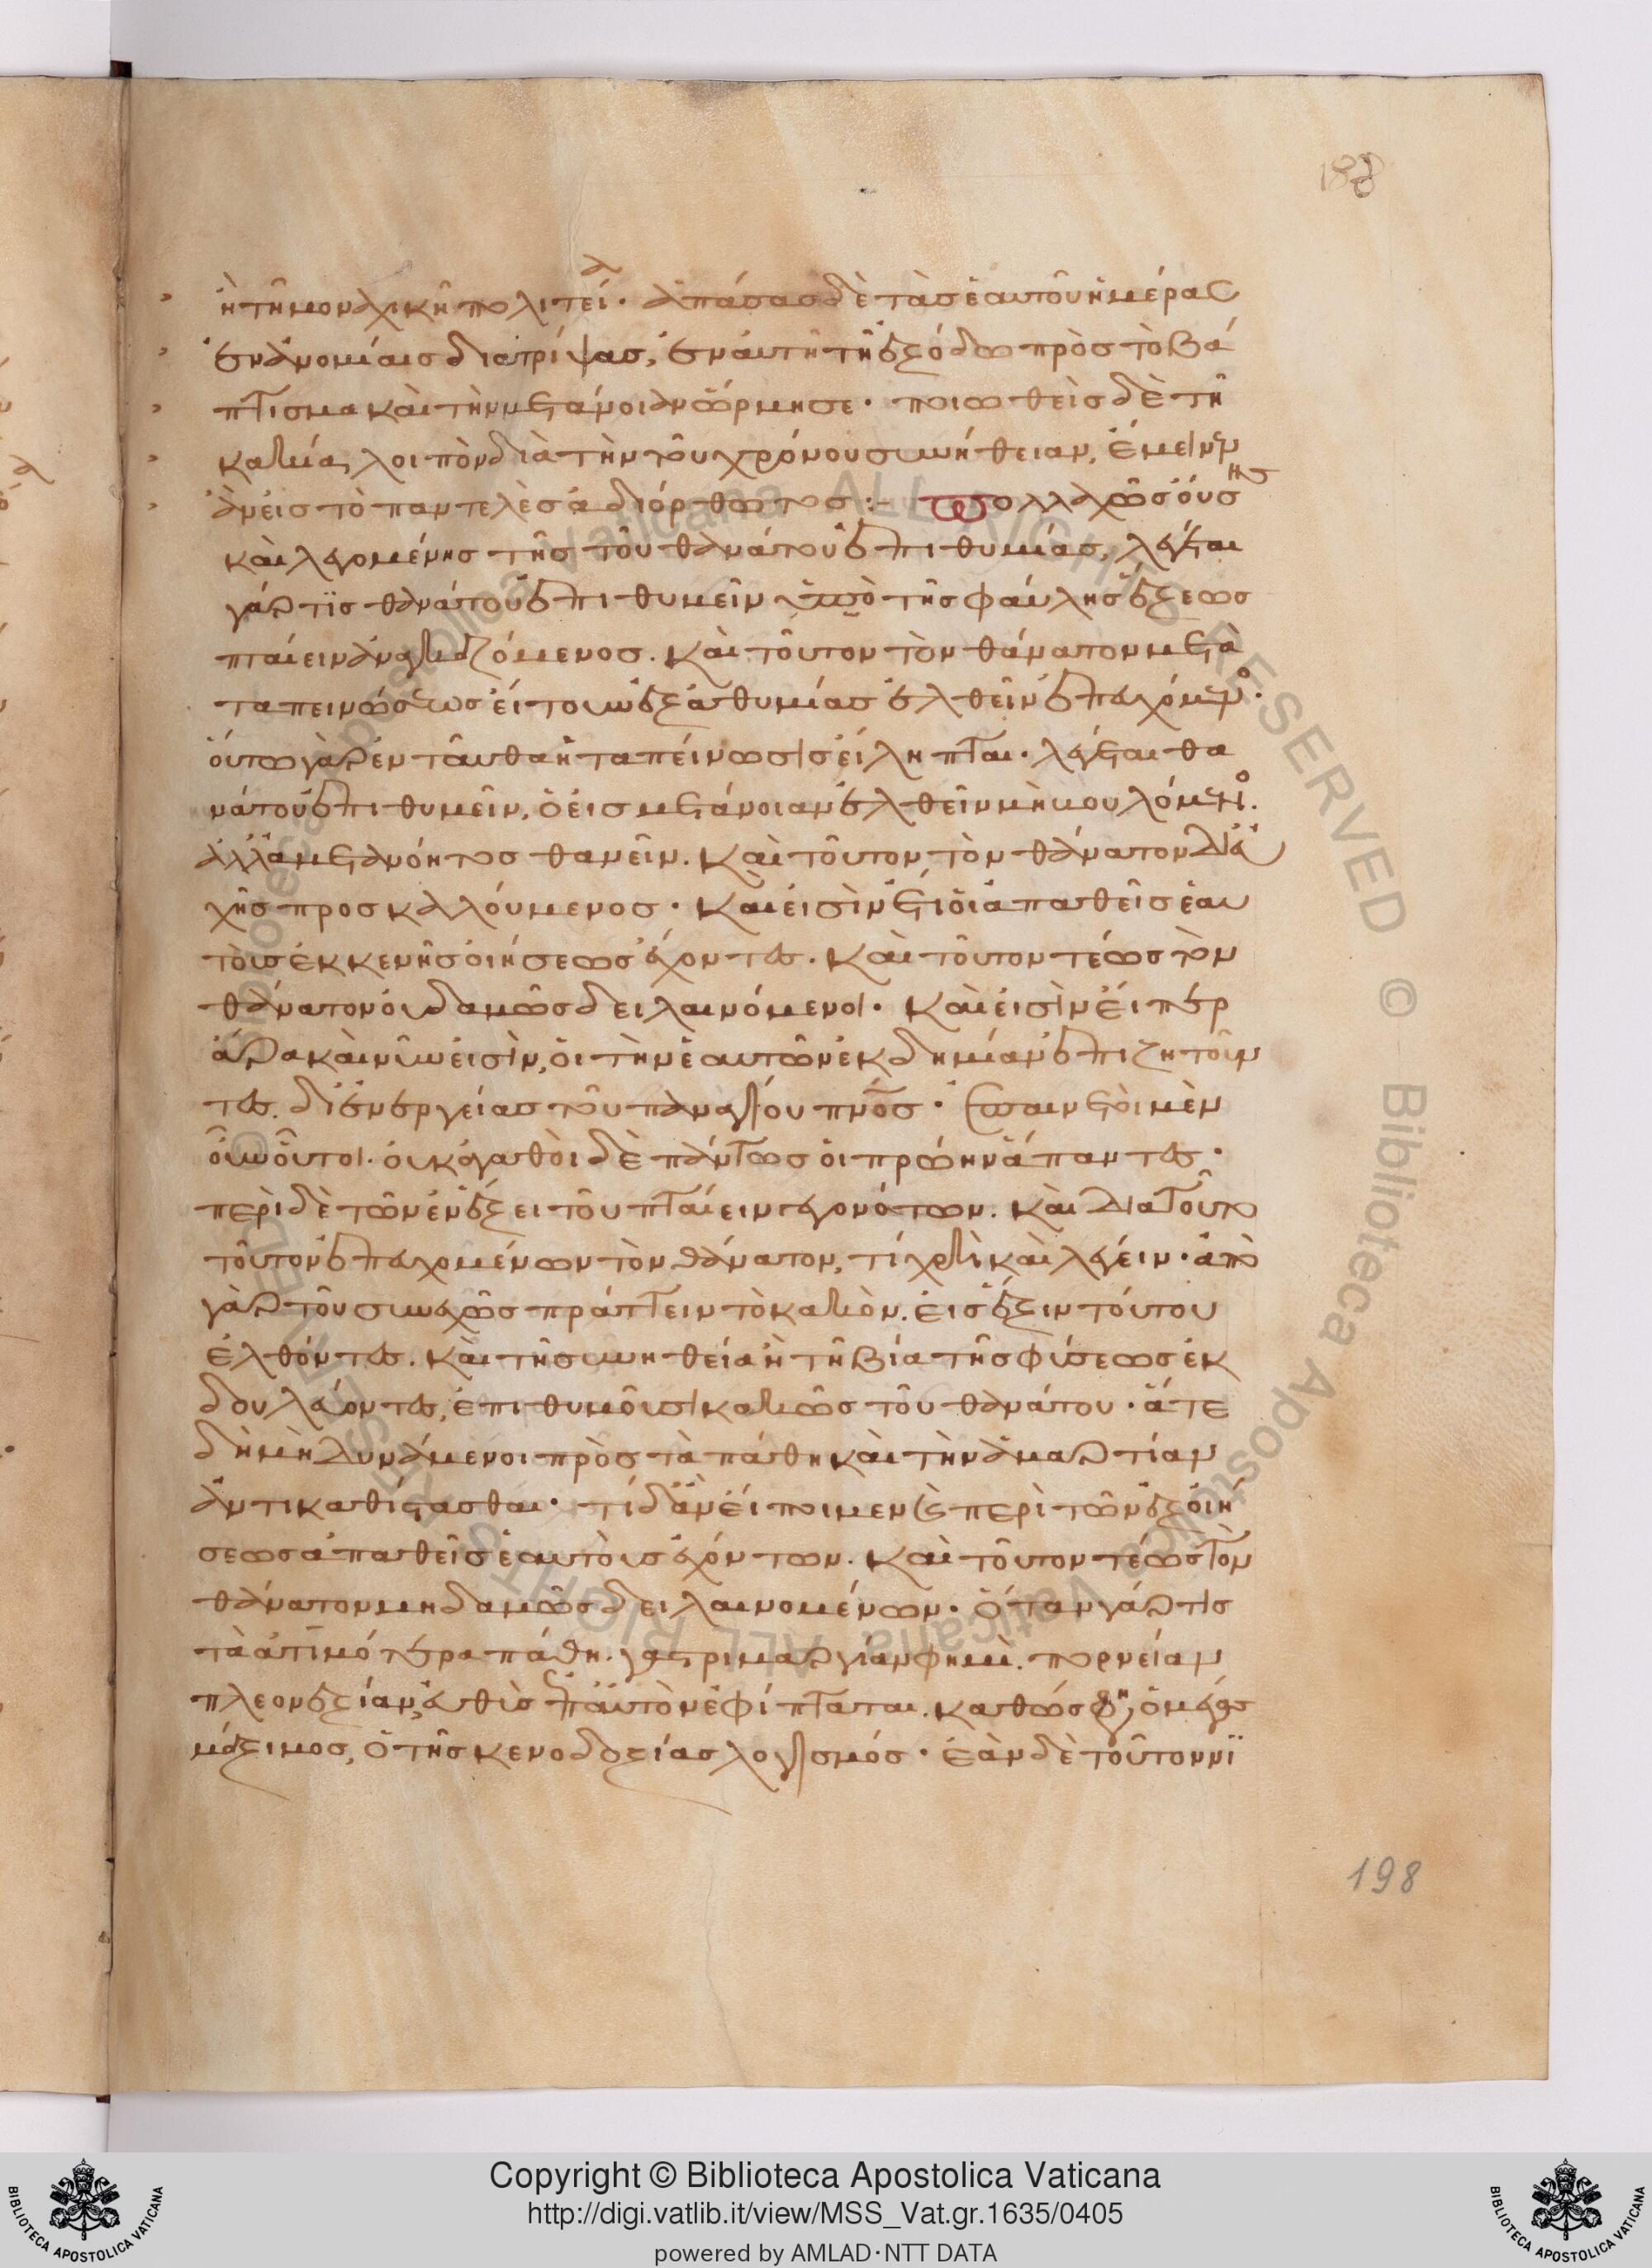 188
ἢ τῆ μοναχικῆ πολιτεία. ἁπάσας δὲ τὰς ἑαυτοῦ ἡμέρας
ἐν ἀνομίαις διατρίψας, ἐν αὐτῆ τῆ ἐξόδω πρὸς τὸ βά
πτισμα καὶ τὴν μετάνοιαν ὥρμησε. ποιωθεὶς δὲ τῆ
κακία, λοιπὸν διὰ τὴν τοῦ χρόνου συνήθειαν, ἔμεινεν
ἀνεὶς τὸ παντελὲς ἀδιόρθωτος :- Πολλαχῶς οὔσης
καὶ λεγομένης τῆς τοῦ θανάτου ἐπιθυμίας, λέγεται
γάρ τις θανάτου ἐπιθυμεῖν ὑπὸ τῆς φαύλης ἕξεως
πταίειν ἀναγκαζόμενος. καὶ τοῦτον τὸν θάνατον μετὰ
ταπεινώσεως εἴτουν ἐξ ἀθυμίας ἐλθεῖν ἐπευχόμενος.
οὕτω γὰρ ἐνταῦθα ἡ ταπείνωσις εἴληπται. λέγεται θα
νάτου ἐπιθυμεῖν, ὁ εἰς μετάνοιαν ἐλθεῖν μὴ βουλόμενος.
ἀλλ' ἀμετανόητος θανεῖν. καὶ τοῦτον τὸν θάνατον δι' εὐ
χῆς προσκαλούμενος. καὶ εἰσὶν ἔτι οἱ ἀπαθεῖς ἑαυ
τοὺς ἐκ κενῆς οἰήσεως ἔχοντες. καὶ τοῦτον τέως τὸν
θάνατον οὐδαμῶς δειλαινόμενοι. καὶ εἰσὶν εἴπερ
ἄρα καὶ νῦν εἰσὶν, οἱ τὴν ἑαυτῶν ἐκδημίαν ἐπιζητοῦν
τες. δι' ἐνεργείας τοῦ παναγίου πνος. ἐπαινετοὶ μὲν
οὖν οὗτοι. οὐκ ἀγαθοὶ δὲ πάντως οἱ πρώην ἅπαντες.
περὶ δὲ τῶν ἐν ἕξει τοῦ πταίειν γεγονότων. καὶ διατοῦτο
τοῦτον ἐπευχομένων τὸν θάνατον, τί χρὴ καὶ λέγειν. ἀπὸ
γὰρ τοῦ συνεχῶς πράττειν τὸ κακὸν. εἰς ἕξιν τούτου
ἐλθόντες. καὶ τῆ συνηθεία ἢ τῆ βία τῆς φύσεως ἐκ
δουλεύοντες, ἐπιθυμοῦσι κακῶς τοῦ θανάτου. ἅτε
δὴ μὴ δυνάμενοι πρὸς τὰ πάθη καὶ τὴν ἁμαρτίαν
ἀντικαθίστασθαι. τί δ' ἂν εἴποιμεν καὶ περὶ τῶν ἐξ οἰή
σεως ἀπαθεῖς ἑαυτοὺς ἐχόντων. καὶ τοῦτον τέως τὸν
θάνατον μηδαμῶς δειλαινομένων. ὅταν γάρ τις
τὰ ἀτιμότερα πάθη. γαστριμαργίαν φημὶ. πορνείαν
πλεονεξίαν, εὐθὺς ἐπ' αὐτὸν ἐφίπταται. καθώς φησιν, ὁ μέγας
μάξιμος, ὁ τῆς κενοδοξίας λογισμός. ἐὰν δὲ τοῦτον νι
198
Copyright © Biblioteca Apostolica Vaticana
http://digi.vatlib.it/view/MSS_Vat.gr.1635/0405
powered by AMLAD·NTT DATA
BIBLIOTECA APOSTOLICA VATICANA
BIBLIOTECA APOSTOLICA VATICANA